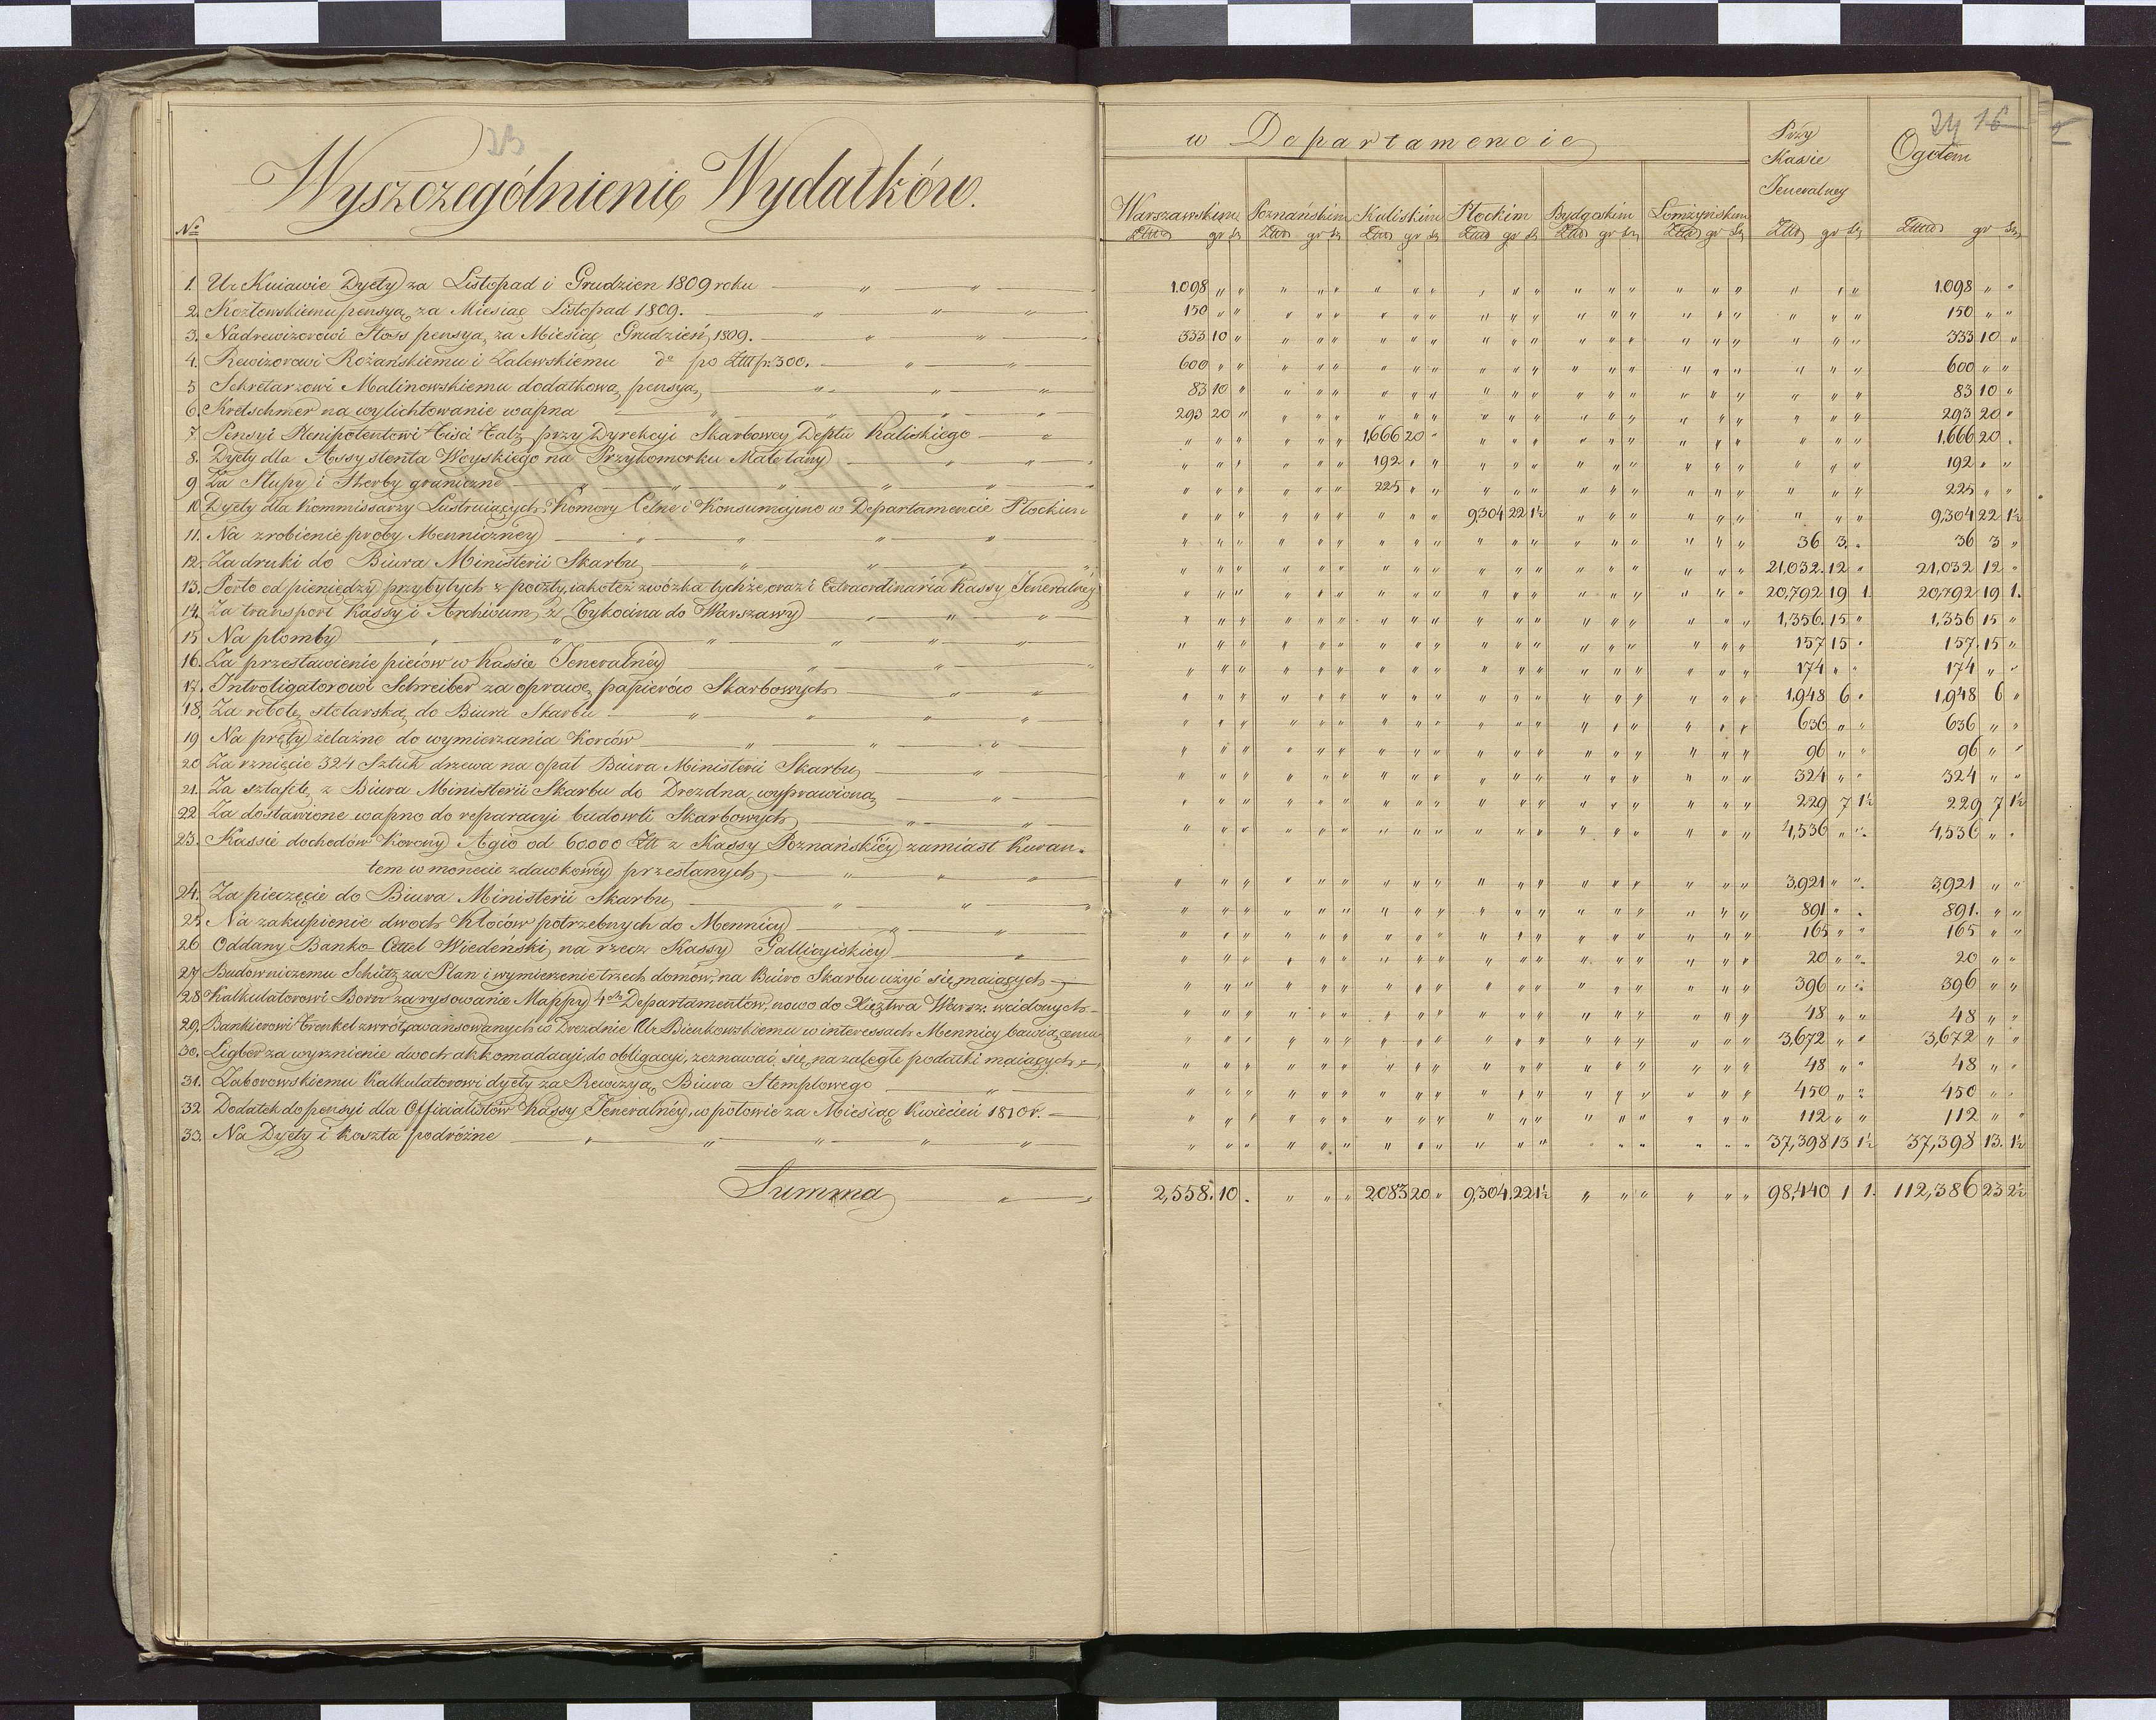 23
Wyszczególnienię Wydatków.
No
w Departamencie
Przy Kasie Jeneralney
24 16
Ogółem
Warszawskim Poznańskim Kaliskim Płockim Bydgoskim Łomżyńskim
Złłd gr sz Złłd gr sz Złłd gr sz Złłd gr sz Złłd gr sz Złłd gr sz Złłd gr sz Złłd gr sz
1. Ur Kuiawie Dyety za Listopad i Grudzien 1809 roku 1.098 " " 1.098 " "
2. Kozłowskiemu pensya za Miesiąc Listopad 1809. 150 " " 150 " "
3. Nadrewizorowi Stoss pensya za Miesiąc Grudzień 1809. 333 10 " 333 10 "
4. Rewizorowi Rożańskiemu i Zalewskiemu do po Złłt pr. 300. 600 " " 600 " "
5 Sekretarzowi Malinowskiemu dodatkowa pensya 83 10 " 83 10 "
6. Kretschmer na wylichtowanie wapna 293 20 " 293 20 "
7. Pensyi Plenipotentowi przy Dyrekcyi Skarbowey Deptu Kaliskiego 1,666 20 " 1,666 20 "
8. Dyety dla Assystenta Woyskiego na Przykomorku Matelany 192 " " 192 " "
9. Za Słupy i Herby graniczne 225 " " 225 " "
10 Dyety dla Kommissarzy Lustruiących Komory Celne i Konsumcyine w Departamencie Płockim 9,304 22 1½ 9,304 22 1½
11. Na zrobienie proby Menniczney 36 3 " 36 3 "
12. Za druki do Biura Ministerii Skarbu 21,032 12 " 21,032 12 "
13. Porto od pieniędzy przybyłych z poczty, iakoteż zwózka tychże, oraz i Extraordinaria Kassy Jeneralnéy 20,792 19 1 20,792 19 1.
14. Za transport Kassy i Archivum z Tykocina do Warszawy 1,356. 15 " 1,356 15 "
15 Na plomby 157 15 " 157. 15 "
16. Za przestawienie pieców w Kassie Jeneralnéy 174 " " 174 " "
17. Introligatorowi Schreiber za oprawę papierów Skarbowych 1,948 6 " 1,948 6 "
18. Za robotę stolarską do Biura Skarbu 636 " " 636 " "
19 Na pręty żelażne do wymierzania Korców 96 " " 96 " "
20 Za rznięcie 324 Sztuk drzewa na opał Buira Ministerii Skarbu 324 " " 324 " "
21. Za sztafetę z Biura Ministerii Skarbu do Drezdna wyprawioną 229 7 1½ 229 7 1½
22. Za dostawione wapno do reparacyi budowli Skarbowych 4,536 " " 4,536 " "
23. Kassie dochodów Korony Agio od 60.000 Złt z Kassy Poznańskiéy zamiast Kuran-
tem w monecie zdawkowéy przesłanych 3,921 " " 3,921 " "
24. Za pieczęcie do Biura Ministerii Skarbu 891 " " 891. " "
25 Na zakupienie dwoch Kłoców potrzebnych do Mennicy 165 " " 165 " "
26 Oddany Banko-Cettel Wiedeński na rzecz Kassy Gallicyiskiéy 20 " " 20 " "
27 Budowniczemu Schütz za Plan i wymierzenie trzech domów, na Biuro Skarbu użyć się maiących 396 " " 396 " "
28 Kalkulatorowi za rysowanie Mappy 4ch Departamentów, nowo do Xięztwa Warsz. wcidonych 48 " " 48 " "
29. Bankierowi Frenkel zwrót awansowanych w Drezdnie Ur Bienkowskiemu w interessach Mennicy bawiącemu 3,672 " " 3,672 " "
30. Ligber za wyrznienie dwoch akkomadacyi, do obligacyi, zeznawać się na zaległe podatki maiących 48 " " 48 " "
31. Zaborowskiemu Kalkulatorowi dyety za Rewizyą Biura Stemplowego 450 " " 450 " "
32. Dodatek do pensyi dla Officialistów Kassy Jeneralnéy, w połowie za Miesiąc Kwiecień 1810 r. 112 " " 112 " "
33. Na Dyety i koszta podróżne 37,398 13 1½ 37,398 13. 1½
Summa 2,558. 10 " " " " 2083 20 " 9,304 22 1½ " " " " " " 98,440 1 1. 112,386 23 2½